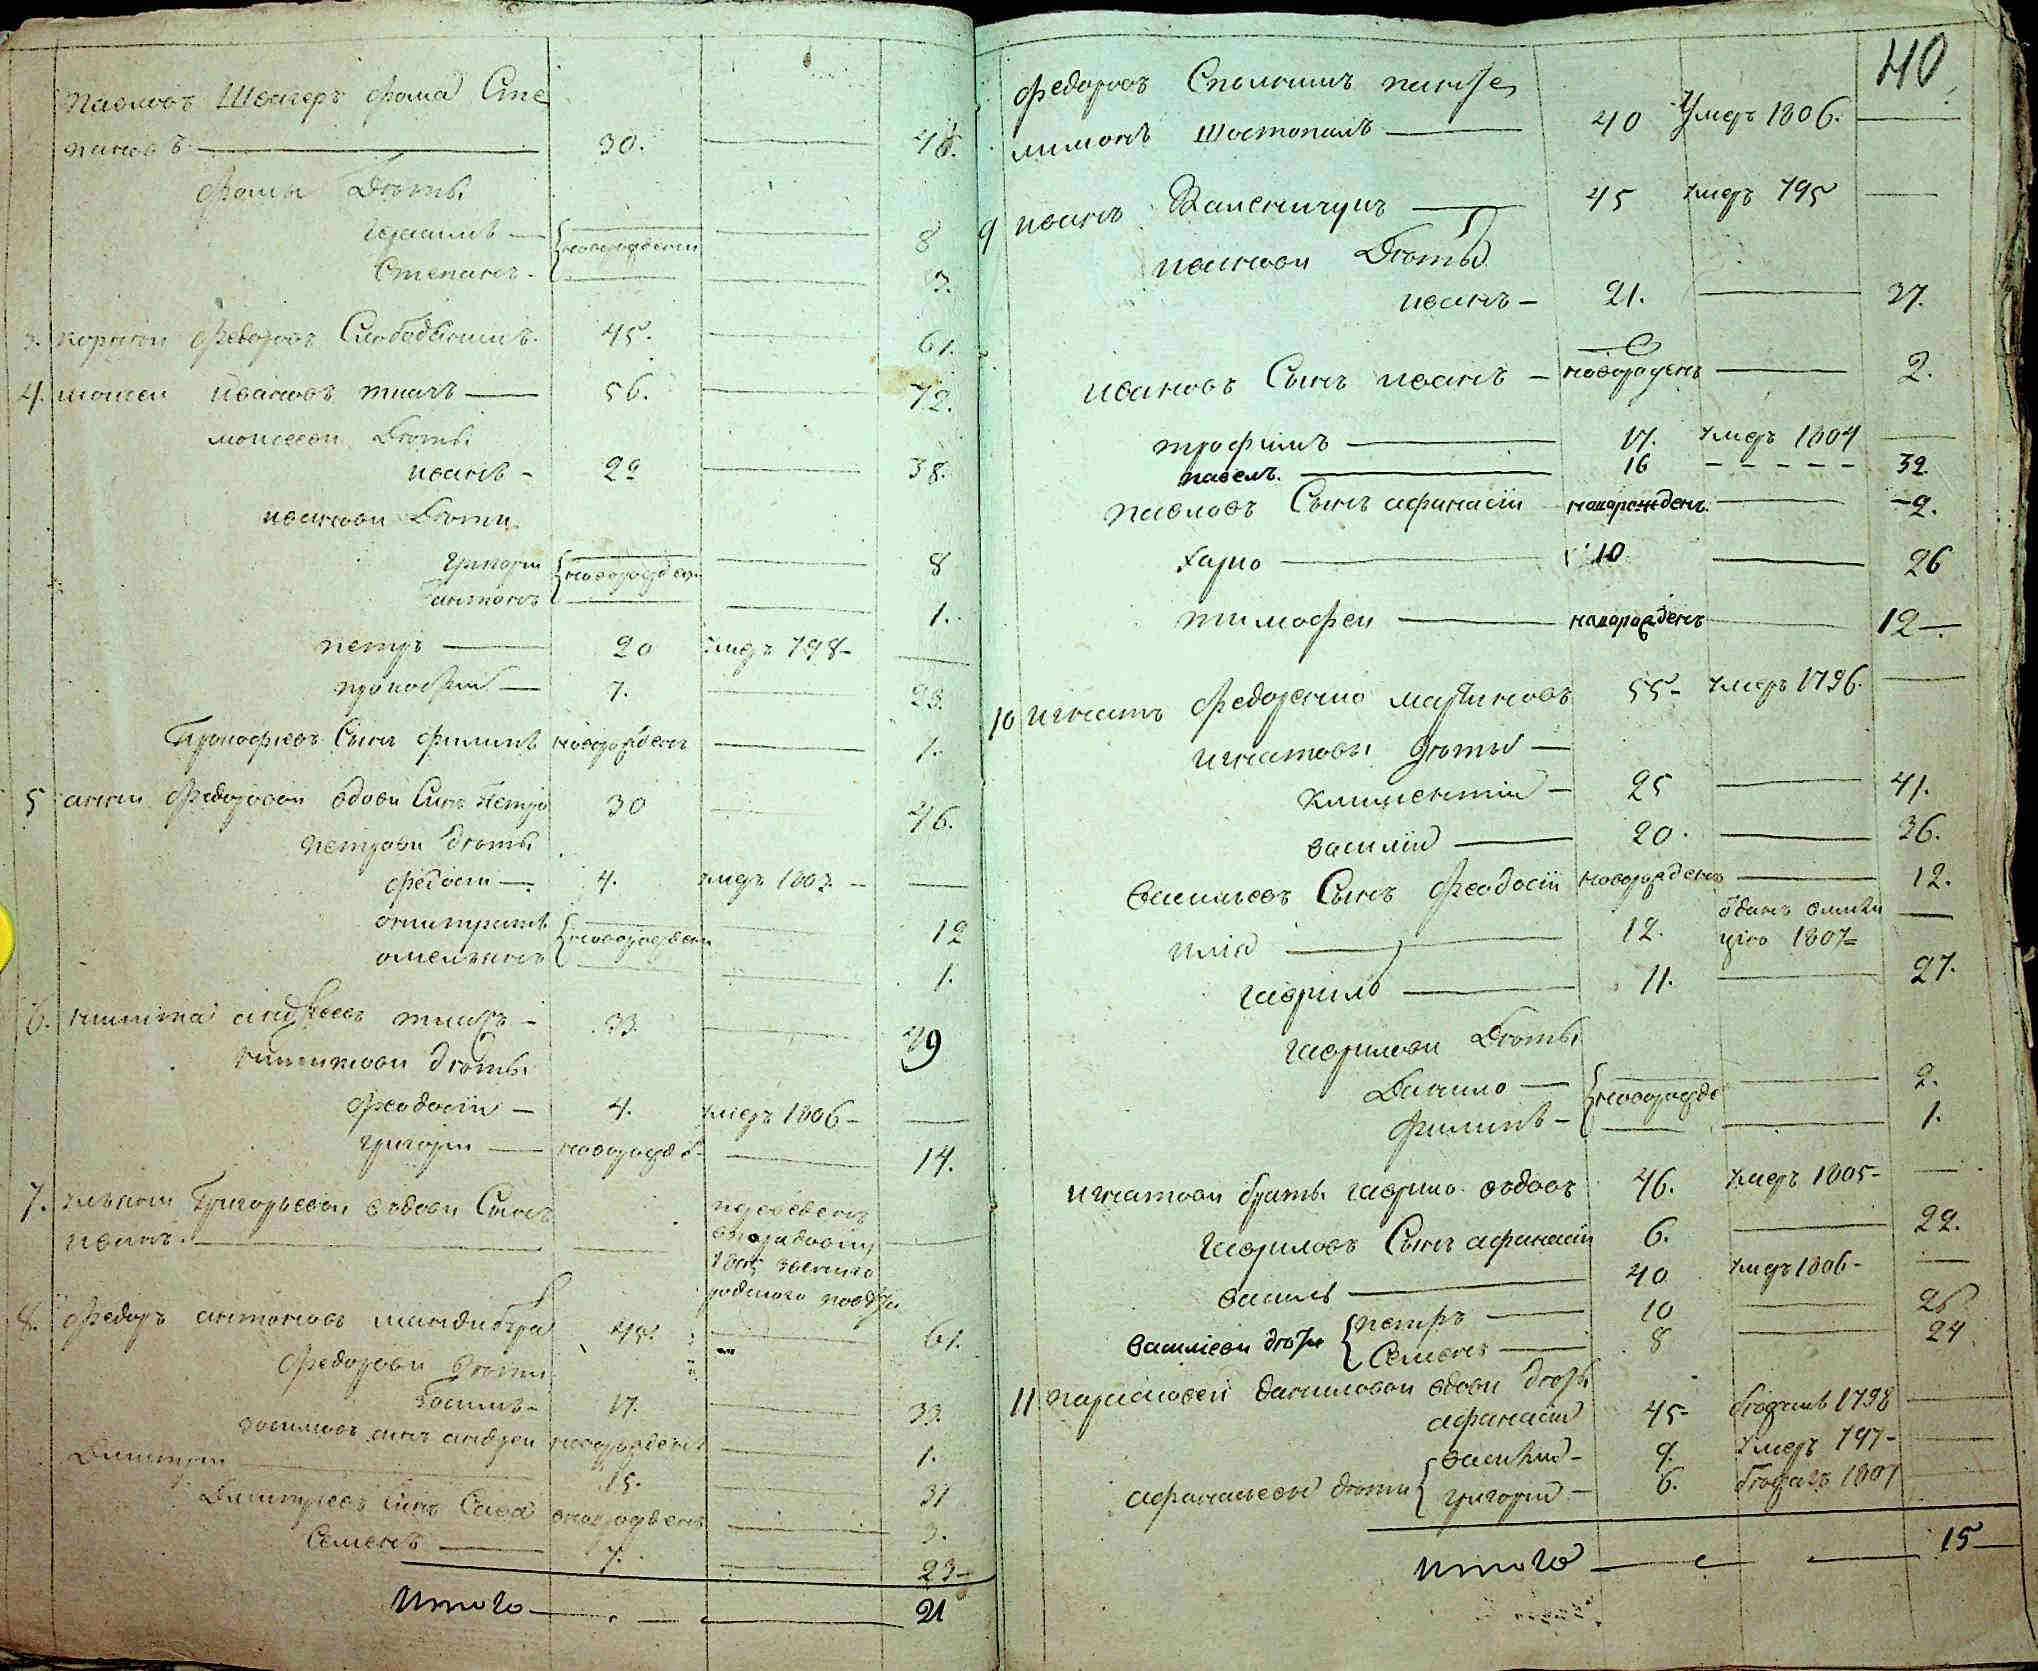 Павловъ Швагеръ Фома Сте
пановъ 30. 46.
Фомы Дѣты
Герасимъ 8
новорожденн
Степанъ 3.
3. Корнѣи Федоровъ Слободянникъ 45. 61.
4. Моисеи Ивановъ Ткачъ 56. 72.
Моисееви Дѣты
Иванъ 22 38.
Иванови Дѣти
Григори 8
новорожден
Антонъ 1.
Петръ 20 умеръ 798
Прокофии 7. 23.
Прокофиевъ Сынъ Филипъ новорожденъ 1.
5 Анни Федоровои вдови Синъ Петро 30 46.
Петрови дѣты
Федоси 4. умеръ 1803.
12
новорожденн
Омельянъ 1.
6. Никита Андреевъ Ткачъ 33. 49
Никитови дѣты
Феодосіи 4. умеръ 1806
Григори новорожде 14.
7. Григорьевои вдови Сынъ переведенъ
Иванъ.
8. Федоръ Антоновъ 45. 61.
Федорови Дѣти
Василь 17. 33.
Василювъ синъ Андреи новорожденъ 1.
Дмитри 15. 31
Дмитриевъ синъ Сава новорожденъ 3.
Семенъ 7. 23
Итого 21
40
Федоровъ Спольникъ Панте
лимонъ Шостопалъ 40 Умеръ 1806.
9 Иванъ Каленичукъ 45 умеръ 795
Иванови Дѣты
Иванъ 21. 37.
Ивановъ Сынъ Иванъ новорожденъ 2.
Трофимъ 17. умеръ 1804
Павелъ. 16 32
Павловъ Сынъ Афанасіи новорожденъ 2.
Харко 10 26
Тимофеи новорожденъ 12
10 Игнатъ Федоренко Мартиновъ 55 умеръ 1796.
Игнатови Дѣты
Климентіи 25 41.
Василіи 20. 36.
Васильевъ Сынъ Феодосіи новорожденъ 12.
Илія 12. одинъ
1807
Гаврило 11. 27.
Гаврилови Дѣты
Данило 2.
новорожде
Филипъ 1.
Игнатови браты Гаврило вдовъ 46. умеръ 1805
Гавриловъ Сынъ Афанасіи 6. 22.
Василь 40 умеръ 1806
Петръ 10 26
Василіеви дѣти
Семенъ 8 24
11 Парасковеи Даниловои вдови Дѣты
Афанасіи 45 бѣжалъ 1798
Василіи 9. умеръ 797
Афанасьеви дѣти
Григории 6. бѣжалъ 1807
Итого 15